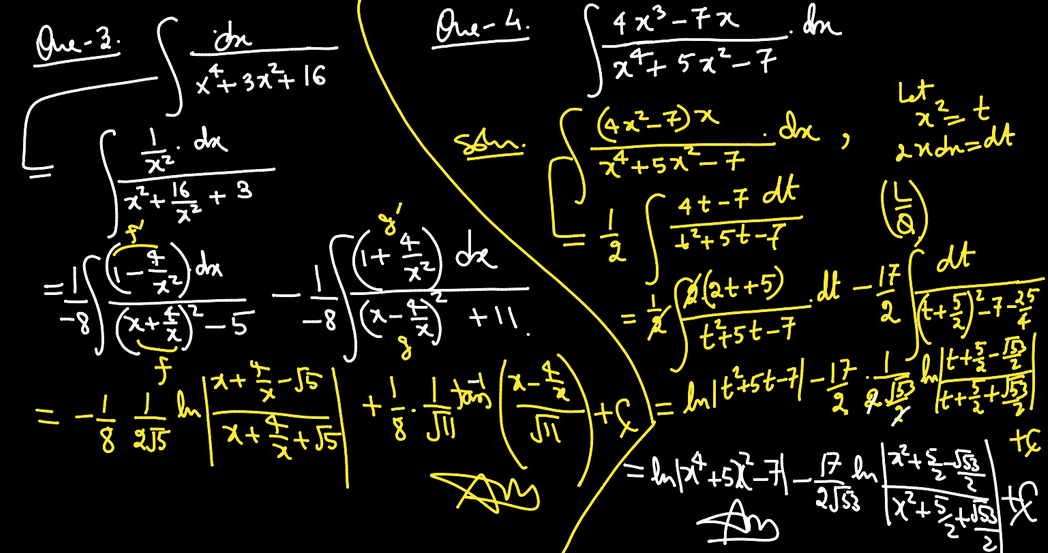 Que-3. ∫ dx / (x⁴+3x²+16)
= ∫ (1/x² · dx) / (x² + 16/x² + 3)
f'
= 1/-8 ∫ (1 - 4/x²) dx / ((x + 4/x)² - 5) - 1/-8 ∫ (1 + 4/x²) dx / ((x - 4/x)² + 11.
g'
f
g
= -1/8 1/2√5 ln |(x + 4/x - √5) / (x + 4/x + √5)| + 1/8 · 1/√11 tan⁻¹ ((x - 4/x) / √11) + C
Ans
Que-4. ∫ (4x³-7x) / (x⁴+5x²-7) · dx
Soln. ∫ (4x²-7)x / (x⁴+5x²-7) · dx ,
Let
x² = t
2xdx = dt
= 1/2 ∫ (4t-7 dt) / (t²+5t-7)
(L/Q)
= 1/2 ∫ 2(2t+5) / (t²+5t-7) · dt - 17/2 ∫ dt / ((t+5/2)² -7 - 25/4
= ln|t²+5t-7| - 17/2 · 1/(2·√53/2) ln |(t+5/2-√53/2) / (t+5/2+√53/2)|
+C
= ln|x⁴+5x²-7| - 17/2√53 ln |(x²+5/2-√53/2) / (x²+5/2+√53/2)| + C
Ans